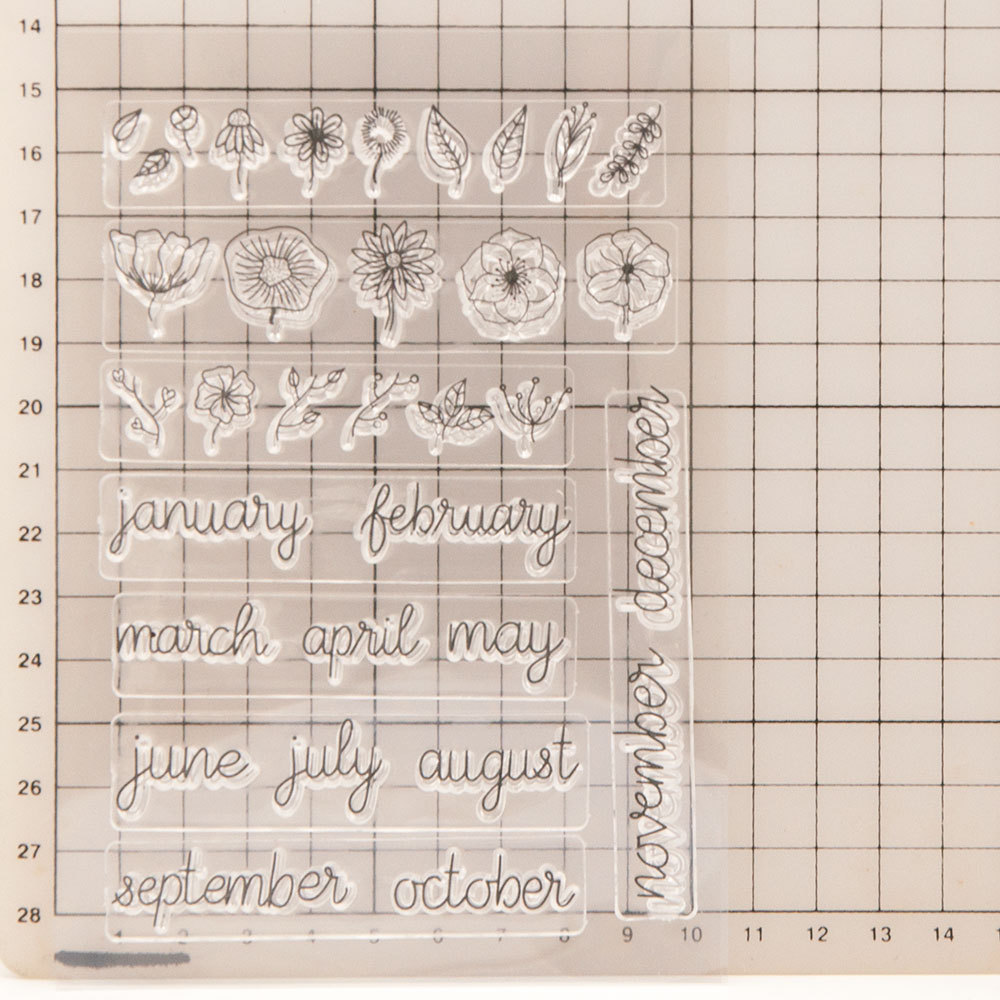 14
15
16
17
18
19
20
21
22
23
24
25
26
27
28
january february
march april may
june july august
september october
november december
1 2 3 4 5 6 7 8 9 10 11 12 13 14